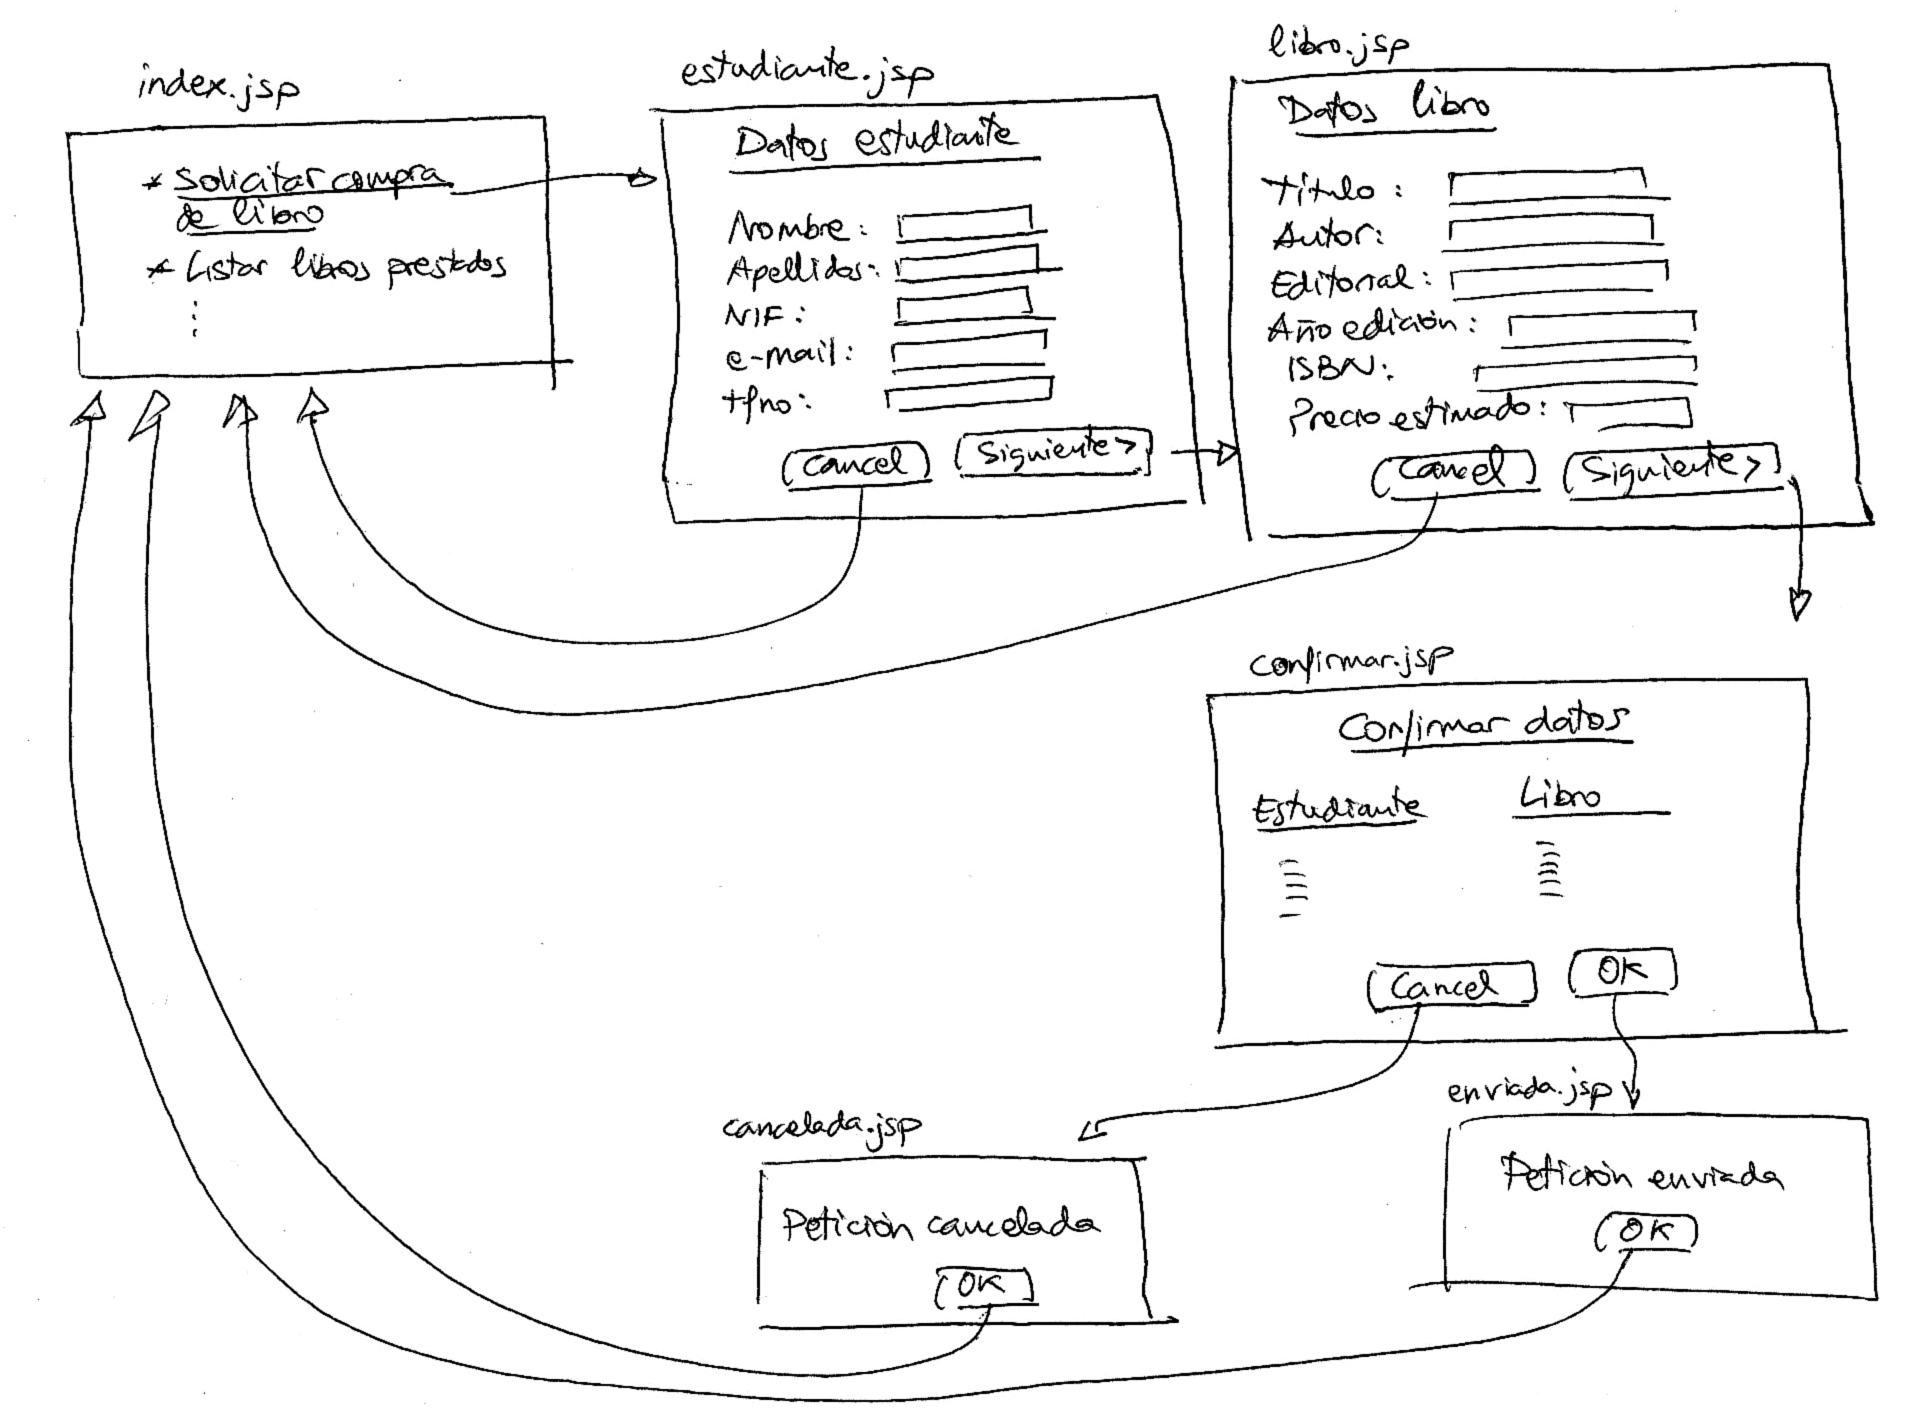 index.jsp
* Solicitar compra
de libro
* Listar libros prestados
estudiante.jsp
Datos estudiante
Nombre:
Apellidos:
NIF:
e-mail:
tfno:
Cancel
Siguiente >
libro.jsp
Datos libro
Título:
Autor:
Editorial:
Año edición:
ISBN:
Precio estimado:
Cancel
Siguiente >
confirmar.jsp
Confirmar datos
Estudiante
Libro
Cancel
OK
cancelada.jsp
Petición cancelada
OK
enviada.jsp
Petición enviada
OK